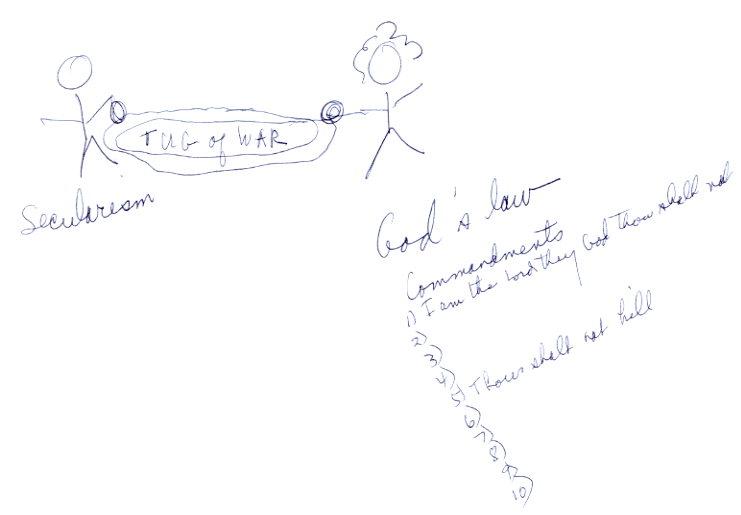 TUG of WAR
Secularism
God's law
Commandments
1) I am the Lord thy God thou shall not
2)
3)
4)
5) Thou shalt not kill
6)
7)
8)
9)
10)